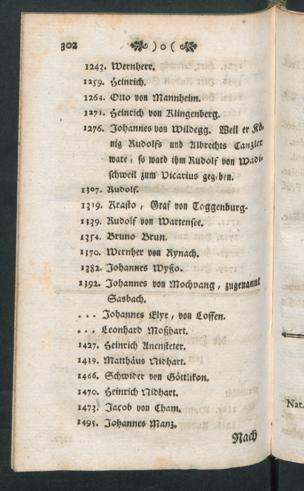 302 ) o (
1243. Wernherr.
1259. Heinrich.
1264. Otto von Mannheim.
1271. Heinrich von Klingenberg.
1276. Johannes von Wildegg. Weil er Kö-
nig Rudolfs und Albrechts Canzler
ware, so ward ihm Rudolf von Wadi-
schweil zum Vicarius gegeben.
1307. Rudolf.
1319. Krafto, Graf von Toggenburg.
1339. Rudolf von Wartensee.
1354. Bruno Brun.
1370. Wernher von Rynach.
1382. Johannes Wyßo.
1392. Johannes von Mochvang, zugenannt
Sasbach.
... Johannes Elye, von Coffen.
... Leonhard Moßhart.
1427. Heinrich Anensteter.
1439. Matthäus Nidhart.
1466. Schwider von Göttlikon.
1470. Heinrich Nidhart.
1473. Jacob von Cham.
1495. Johannes Manz.
Nach
Nat.